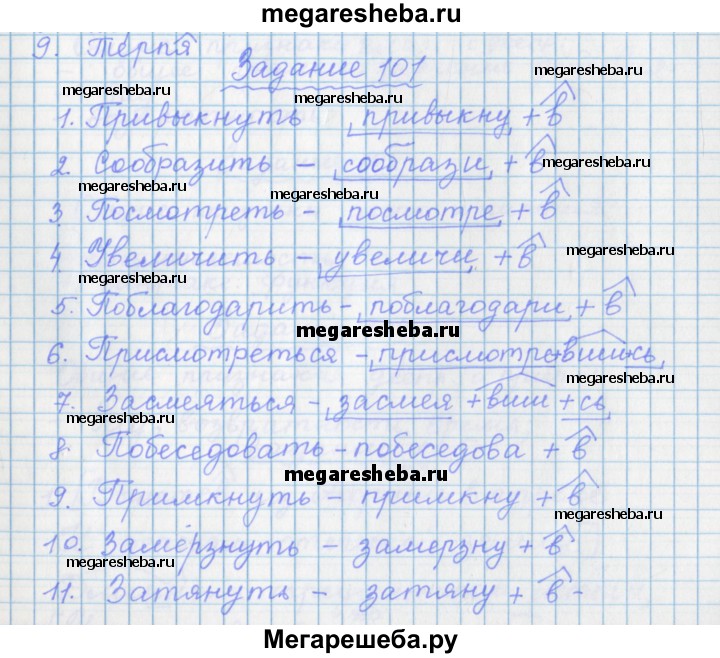 megaresheba.ru
9. Терпя
Задание 101
megaresheba.ru
megaresheba.ru
megaresheba.ru
1. Привыкнуть привыкну + в
2. Сообразить – сообрази + в
megaresheba.ru
megaresheba.ru
3. Посмотреть – посмотре + в
4. Увеличить – увеличи + в
megaresheba.ru
megaresheba.ru
5. Поблагодарить – поблагодари + в
megaresheba.ru
6. Присмотреться – присмотре+вши+сь
megaresheba.ru
7. Засмеяться – засмея + вши + сь
megaresheba.ru
8. Побеседовать – побеседова + в
megaresheba.ru
9. Примкнуть – примкну + в
megaresheba.ru
10. Замёрзнуть – замерзну + в
megaresheba.ru
11. Затянуть – затяну + в -
Мегарешеба.ру